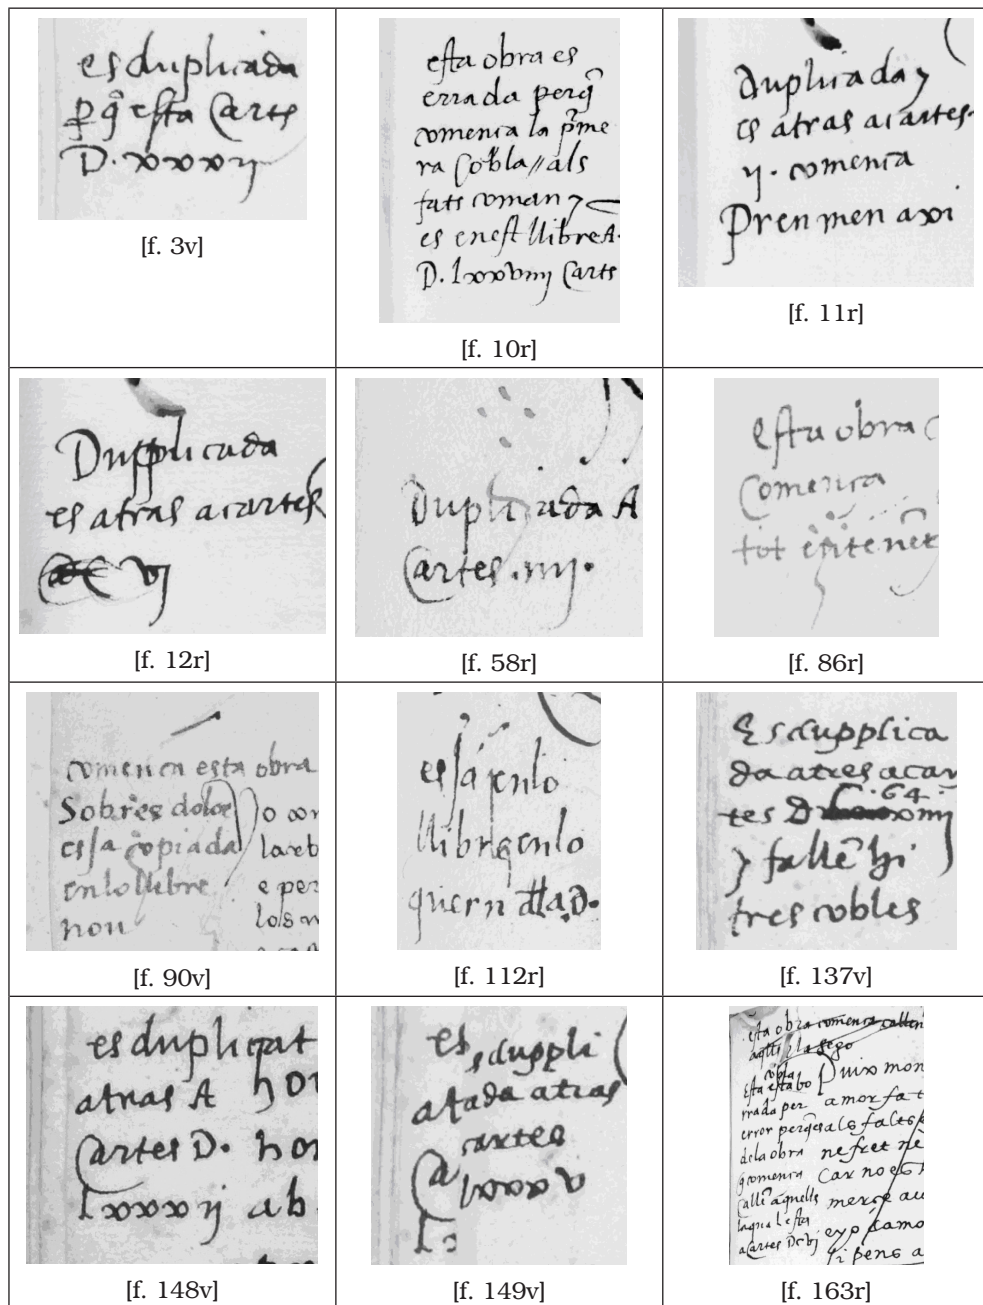 es duplicada
p̱ q̃ esta Carts
D. xxxij
[f. 3v]
esta obra es
errada perq̃
comenca la p̃me
ra Cobla // als
fats coman
es enest llibre A.
D. lxxxviiij Carts
[f. 10r]
duplicada y
es atras acartes.
ij. comenca
Pren men axi
[f. 11r]
Dupplicada
es atras acartes
vj
[f. 12r]
Duplicada A
Cartes .iiij.
[f. 58r]
esta obra
Comenca
tot
[f. 86r]
comenca esta obra
Sobres dolor
essa copiada
enlo llibre
nou
[f. 90v]
es ja enlo
llibre enlo
quern
[f. 112r]
Es dupplica
da atres acar
tes D 64
y falle hi
tres cobles
[f. 137v]
es duplicat
atras A
Cartes D. hon
lxxxij ab
[f. 148v]
es duppli
atada atras
cartes
lxxxv
[f. 149v]
esta obra comenca callen
Puixs mon
rrada per amor fat
error perq̃es als falts
dela obra ne fret ne
q̃comenca Car no es
Calle aquells merce au
laqual esta
acartes Dcvj
si pens a
[f. 163r]